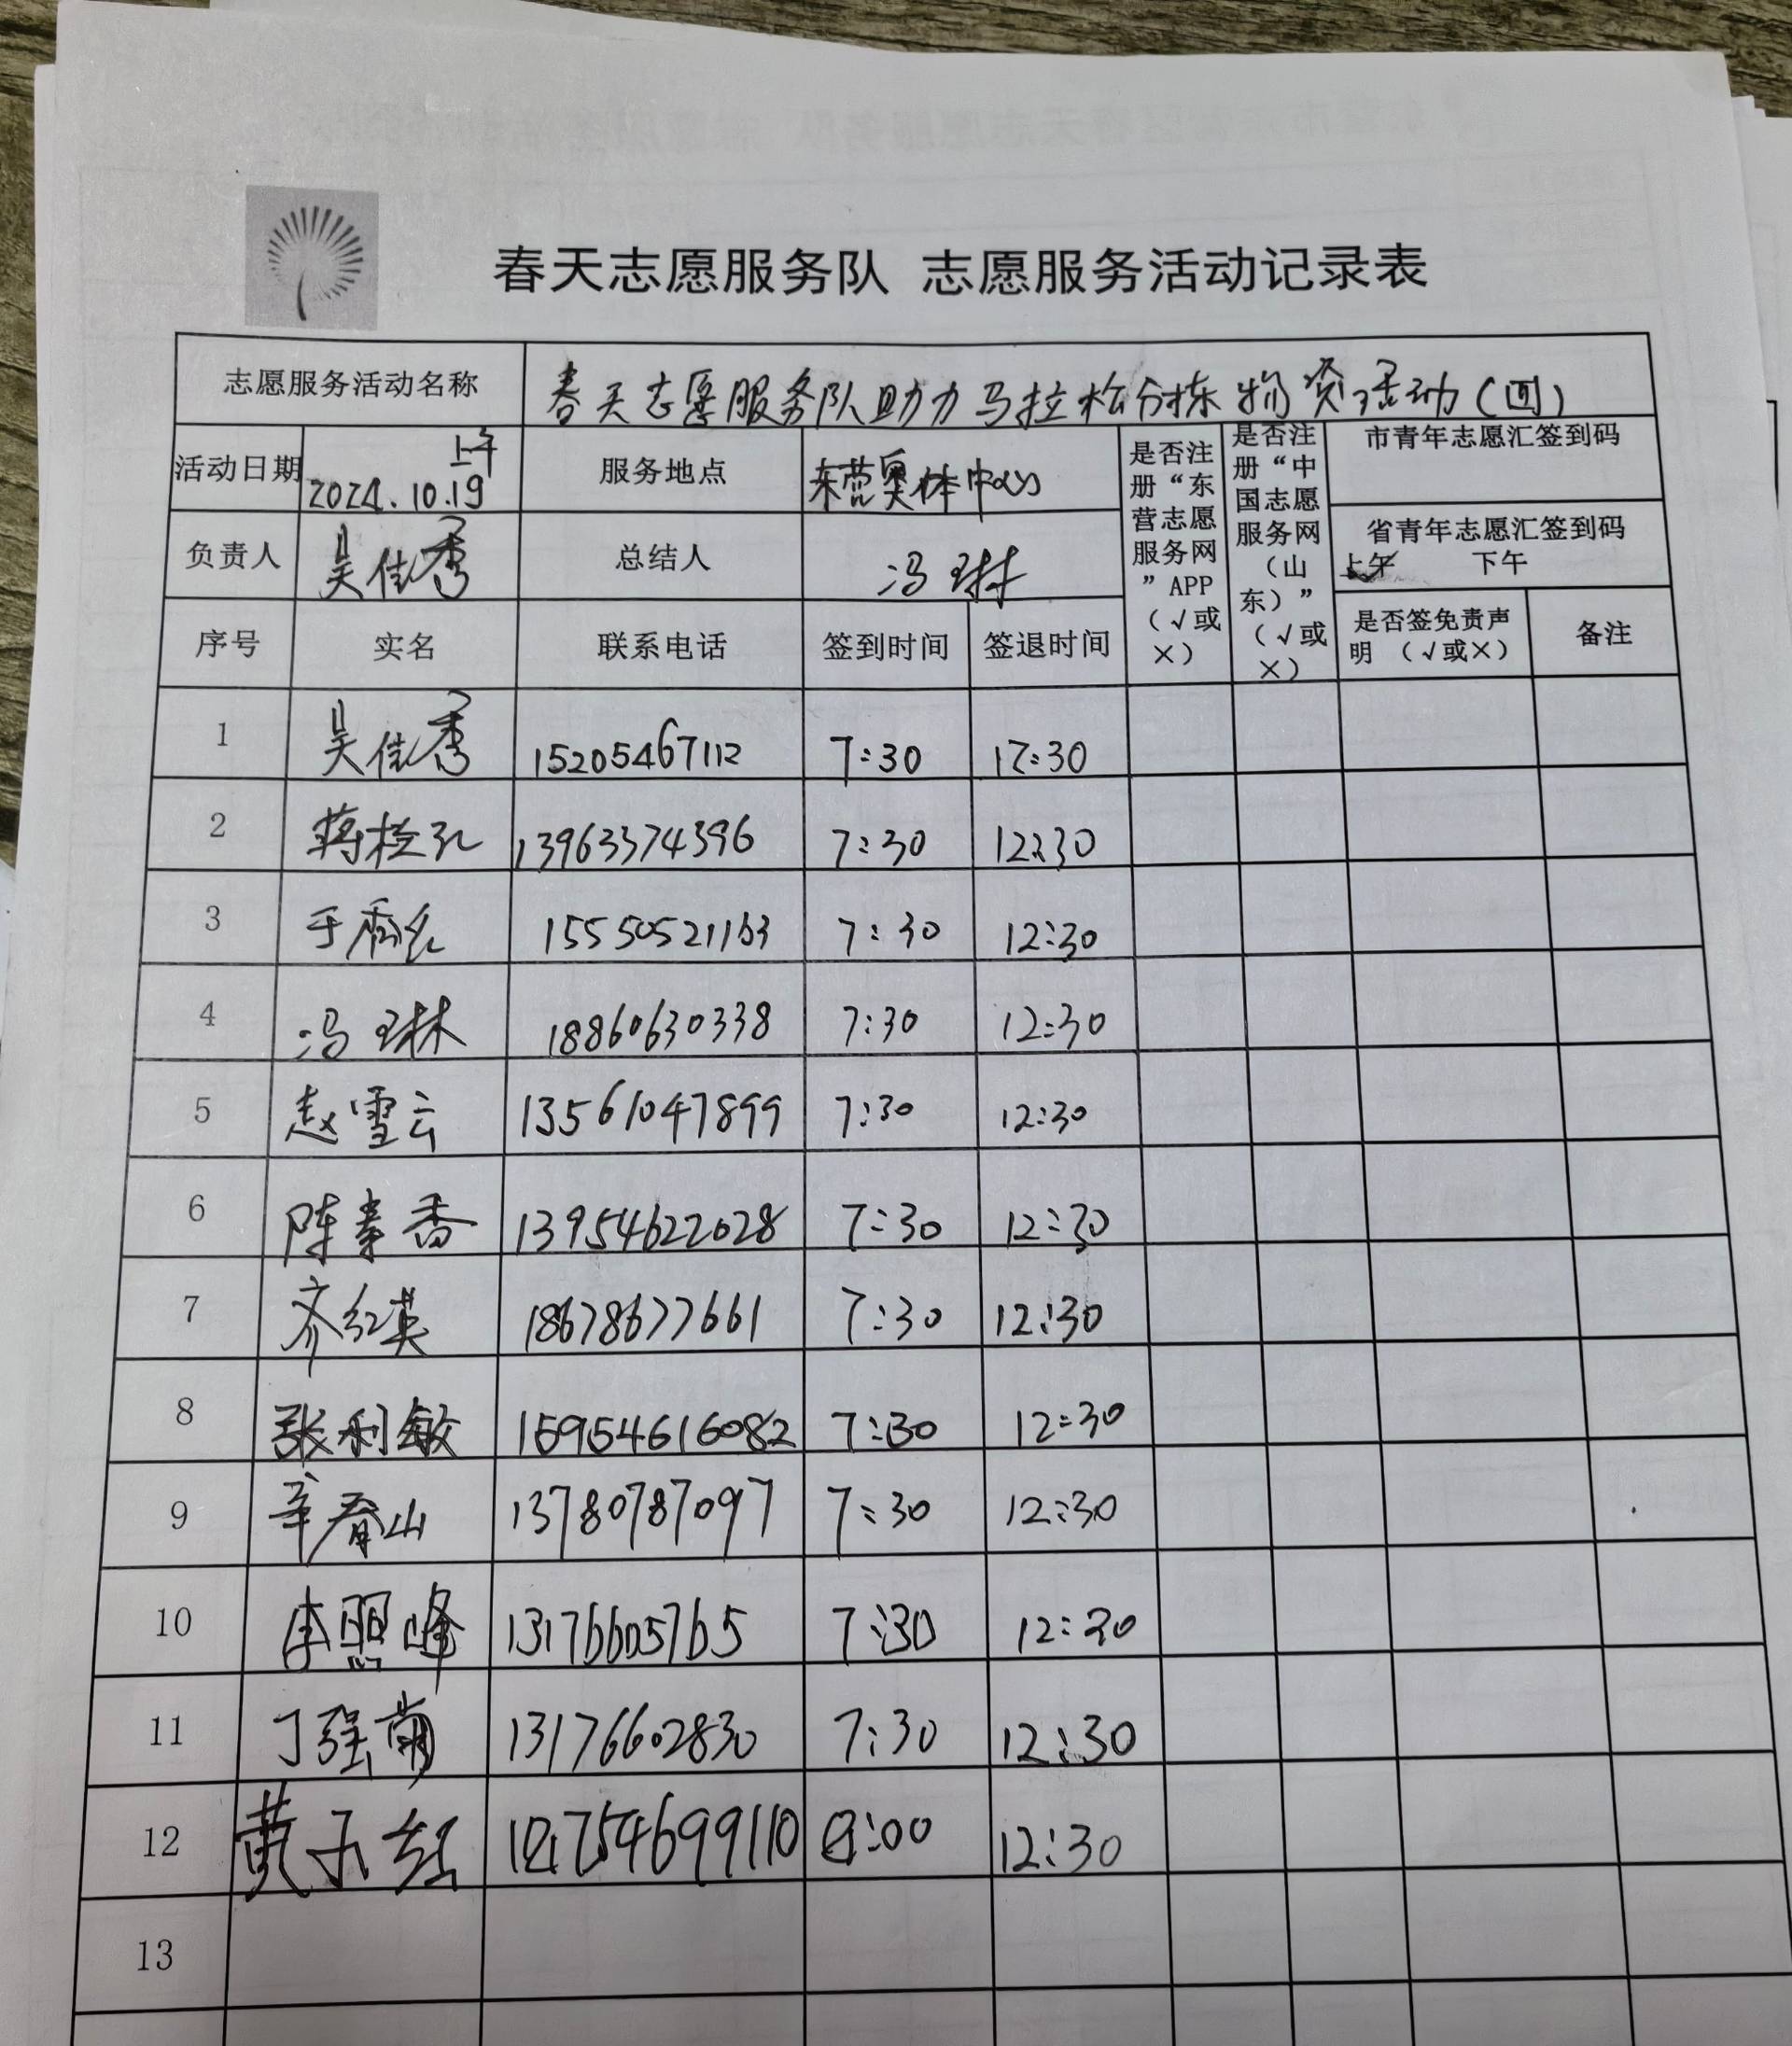 春天志愿服务队 志愿服务活动记录表
志愿服务活动名称 春天志愿服务队助力马拉松分拣物资活动(四)
活动日期 2024.10.19 上午 服务地点 东营奥体中心 是否注册“东营志愿服务网”APP(√或×) 是否注册“中国志愿服务网(山东)”(√或×) 市青年志愿汇签到码
负责人 吴佳秀 总结人 冯琳 省青年志愿汇签到码
上午 下午
序号 实名 联系电话 签到时间 签退时间 是否签免责声明 (√或×) 备注
1 吴佳秀 15205467112 7:30 12:30
2 蒋桂孔 13963374396 7:30 12:30
3 于 15550521163 7:30 12:30
4 冯琳 18860630338 7:30 12:30
5 赵雪云 13561047899 7:30 12:30
6 陈素香 13954622028 7:30 12:30
7 齐红英 18678677661 7:30 12:30
8 张利敏 15954616082 7:30 12:30
9 辛春山 13780787097 7:30 12:30
10 李照峰 13176605765 7:30 12:30
11 丁强 13176602830 7:30 12:30
12 黄 8:00 12:30
13